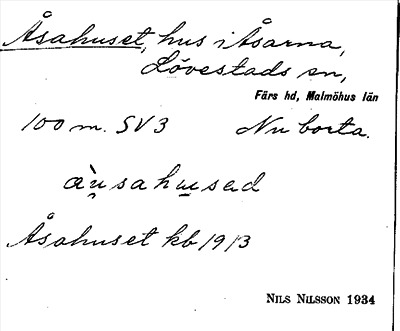 Åsahuset, hus i Åsarna,
Lövestads sn,
Färs hd, Malmöhus län
100 m. SV 3 Nu borta.
àu̯sahu̲sad
Åsahuset kb 1913
NILS NILSSON 1934